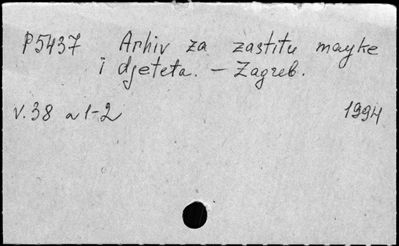 P5437 Arhiv za zastitu mayke
i djeteta. - Zagreb.
v. 38 n 1-2 1994